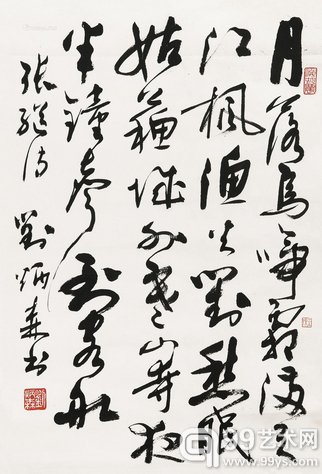 月落烏啼霜滿天
江楓漁火對愁眠
姑蘇城外寒山寺夜
半鐘聲到客船
張繼詩 劉炳森書
99艺术网
www.99ys.com